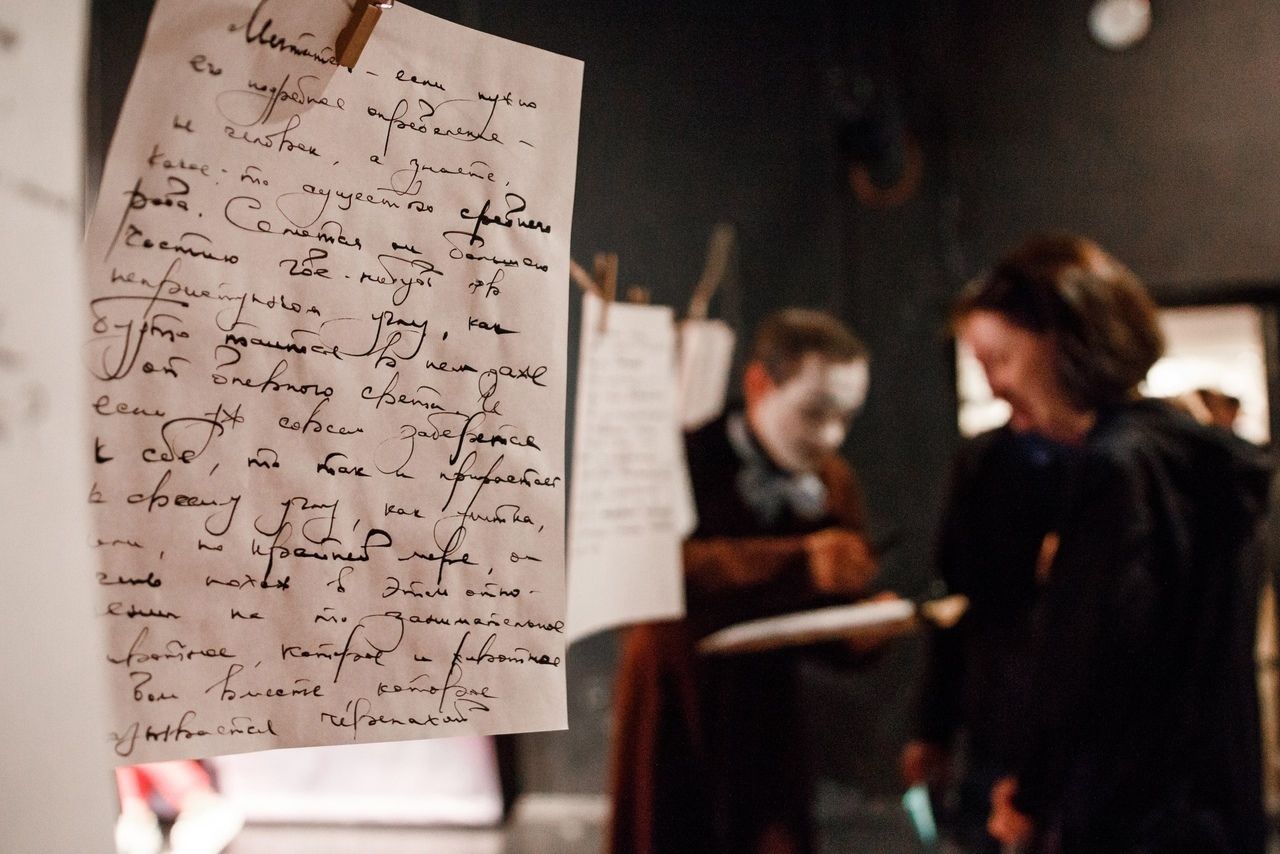 Мечтатель – если нужно
его подробное определение –
не человек, а знаете,
какое-то существо среднего
рода. Селится он большею
частию где-нибудь в
неприступном углу, как
будто таится в нем даже
от дневного света, и
если уж совсем заберется
к себе, то так и прирастет
к своему углу, как улитка,
или, по крайней мере, он
очень похож в этом отно-
шении на то занимательное
животное, которое и животное
и дом вместе, которое
называется черепахой